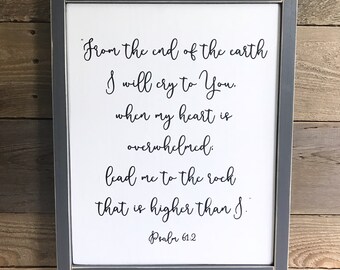 "From the end of the earth
I will cry to You,
when my heart is
overwhelmed;
lead me to the rock
that is higher than I."
Psalm 61:2